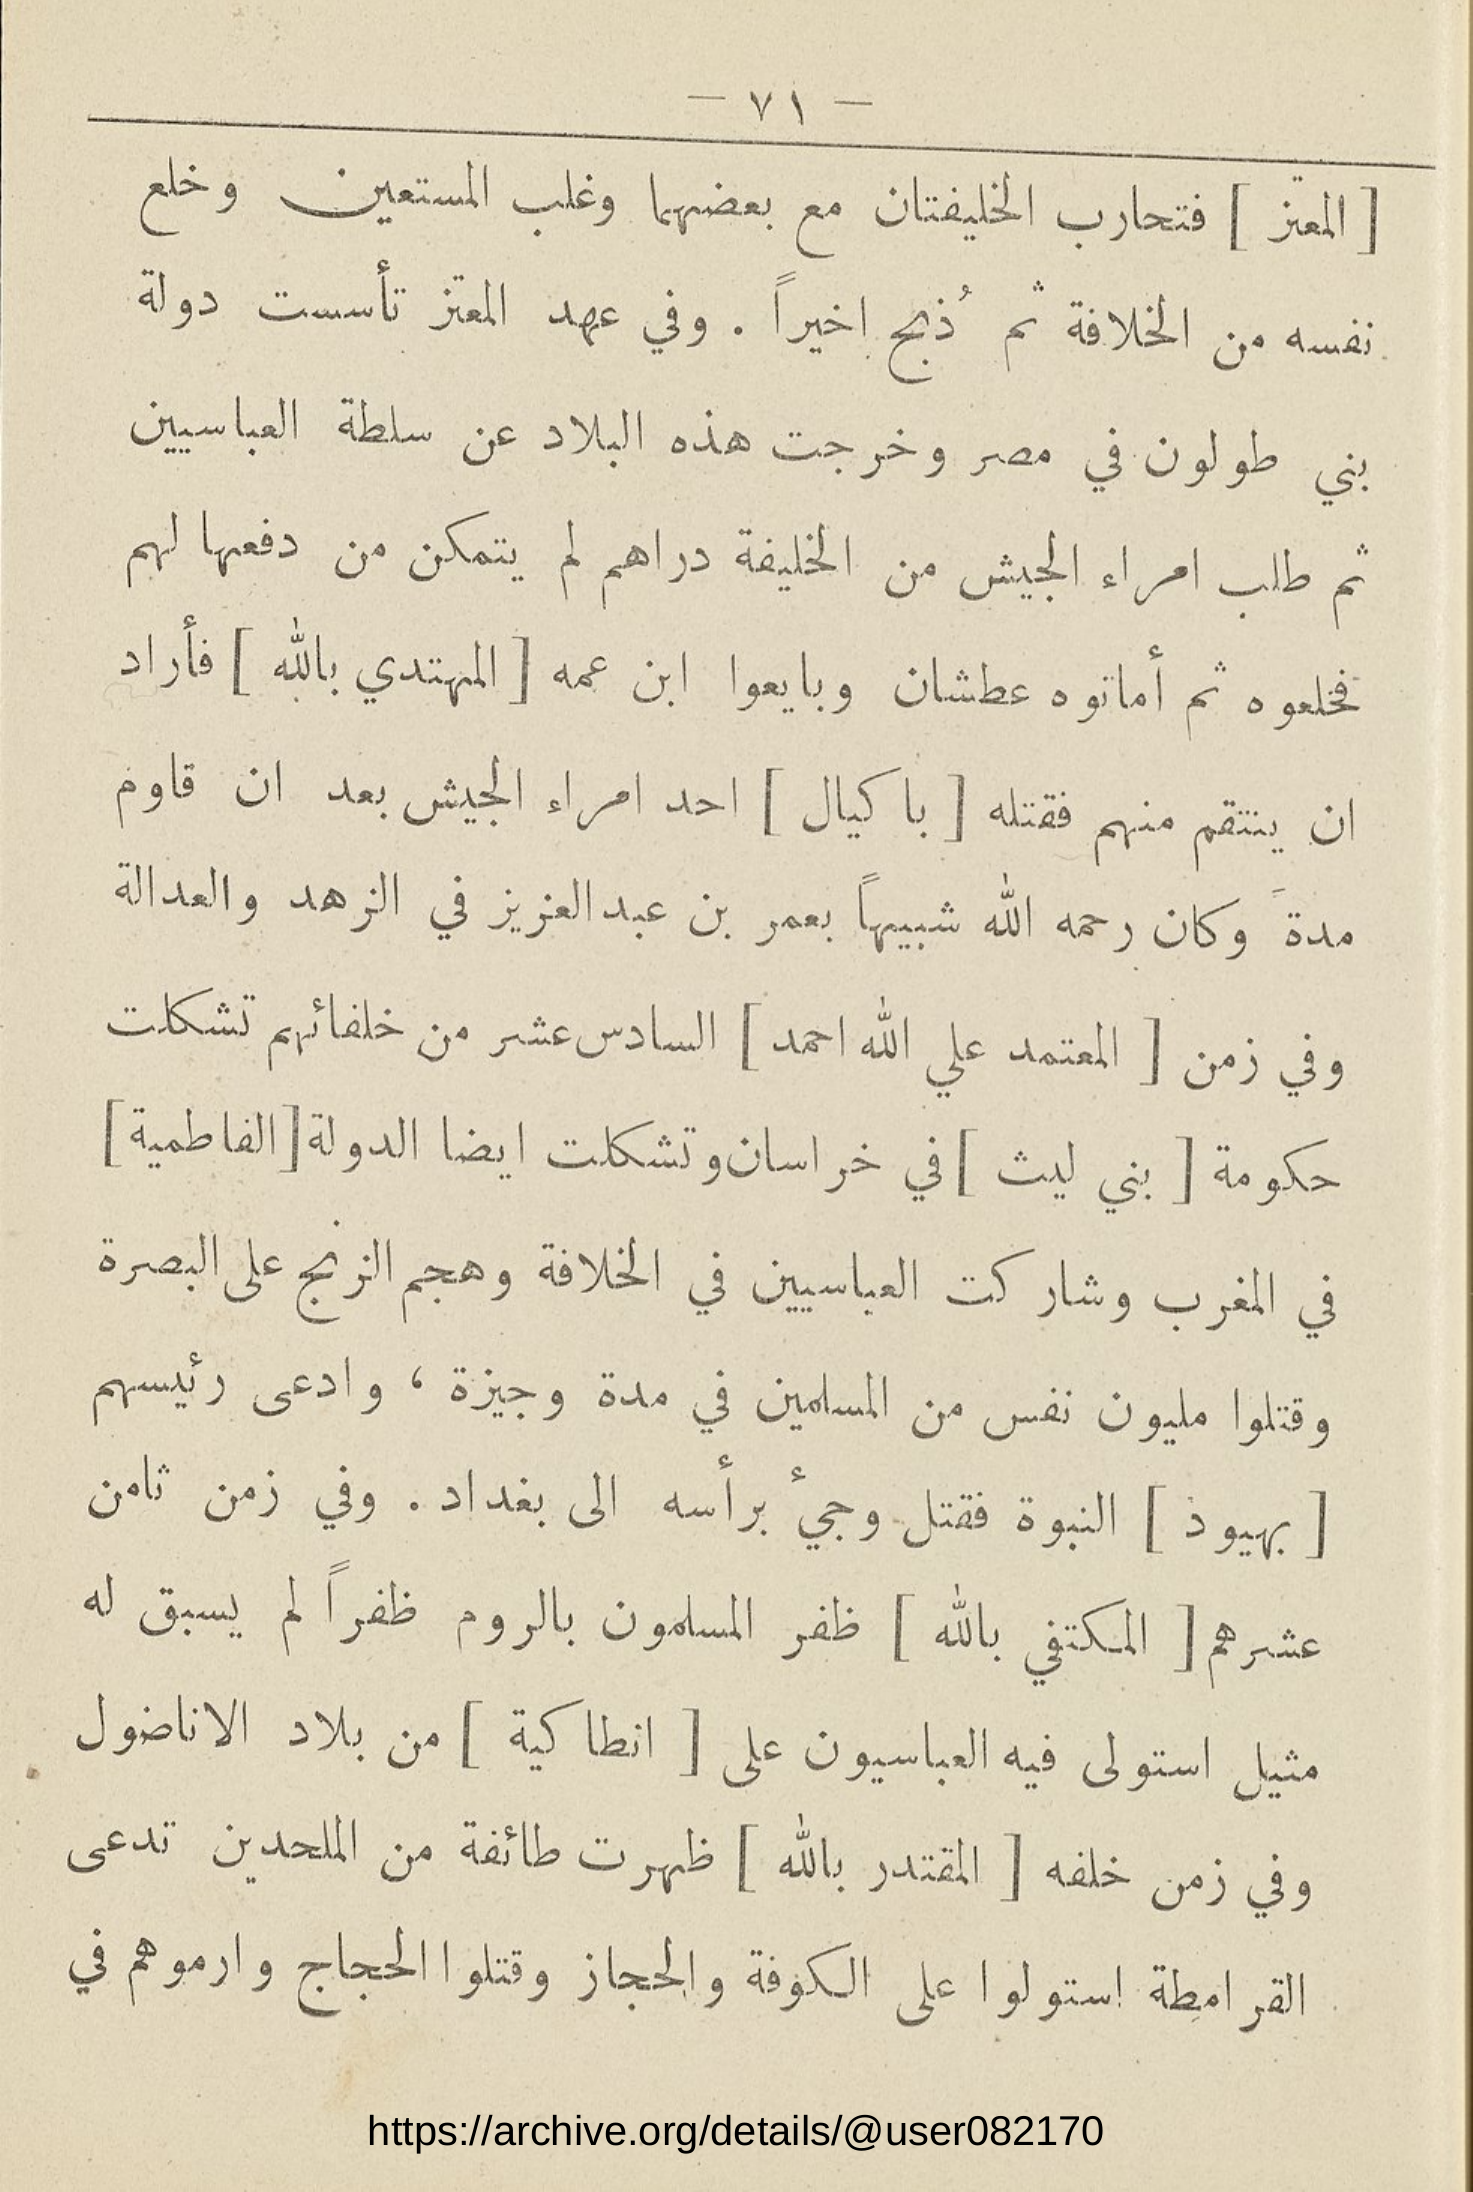 — ٧١ —
[ المعتز ] فتحارب الخليفتان مع بعضهما وغلب المستعين وخلع
نفسه من الخلافة ثم ذُبح اخيراً . وفي عهد المعتز تأسست دولة
بني طولون في مصر وخرجت هذه البلاد عن سلطة العباسيين
ثم طلب امراء الجيش من الخليفة دراهم لم يتمكن من دفعها لهم
فخلعوه ثم أماتوه عطشان وبايعوا ابن عمه [ المهتدي بالله ] فأراد
ان ينتقم منهم فقتله [ باكيال ] احد امراء الجيش بعد ان قاوم
مدةً وكان رحمه الله شبيهاً بعمر بن عبدالعزيز في الزهد والعدالة
وفي زمن [ المعتمد علي الله احمد ] السادس عشر من خلفائهم تشكلت
حكومة [ بني ليث ] في خراسان وتشكلت ايضا الدولة [الفاطمية]
في المغرب وشاركت العباسيين في الخلافة وهجم الزنج على البصرة
وقتلوا مليون نفس من المسلمين في مدة وجيزة ، وادعى رئيسهم
[ بهيوذ ] النبوة فقتل وجئ برأسه الى بغداد . وفي زمن ثامن
عشرهم [ المكتفي بالله ] ظفر المسلمون بالروم ظفراً لم يسبق له
مثيل استولى فيه العباسيون على [ انطاكية ] من بلاد الاناضول
وفي زمن خلفه [ المقتدر بالله ] ظهرت طائفة من الملحدين تدعى
القرامطة استولوا على الكوفة والحجاز وقتلوا الحجاج وارموهم في
https://archive.org/details/@user082170